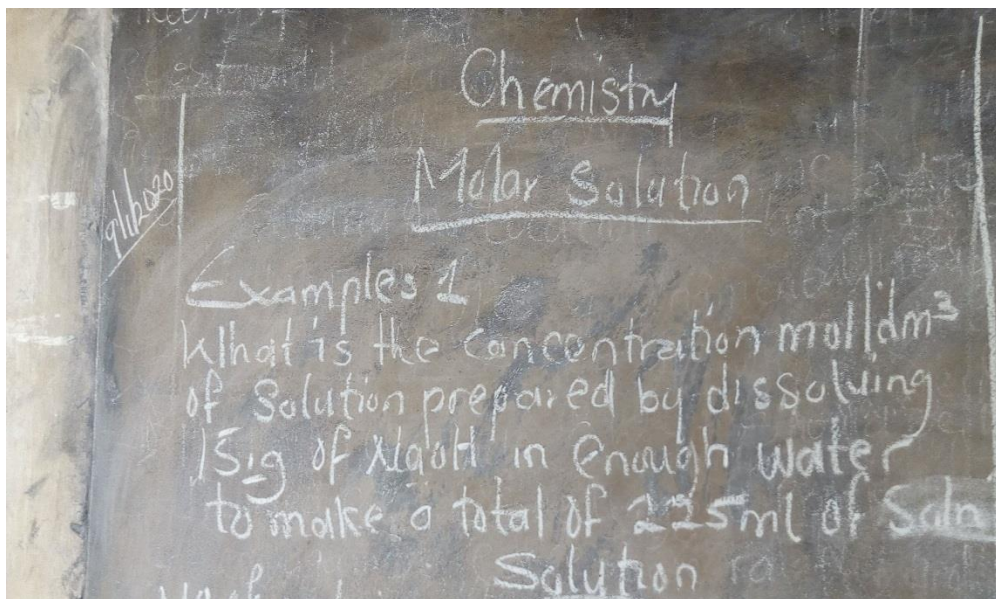 Chemistry
Molar Solution
Examples 1
What is the concentration mol/dm³
of Solution prepared by dissolving
of NaOH in enough water
to make a total of 225ml of Soln
Solution